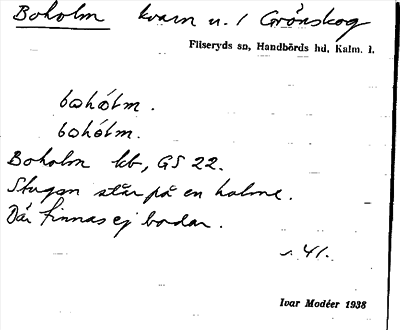 Boholm kvarn u. / Grönskog
Fliseryds sn, Handbörds hd, Kalm. l.
bohólm.
bohólm.
Boholm kb, GS 22.
Stugan står på en holme.
Där finnas ej bodar.
s. 41.
Ivar Modéer 1938